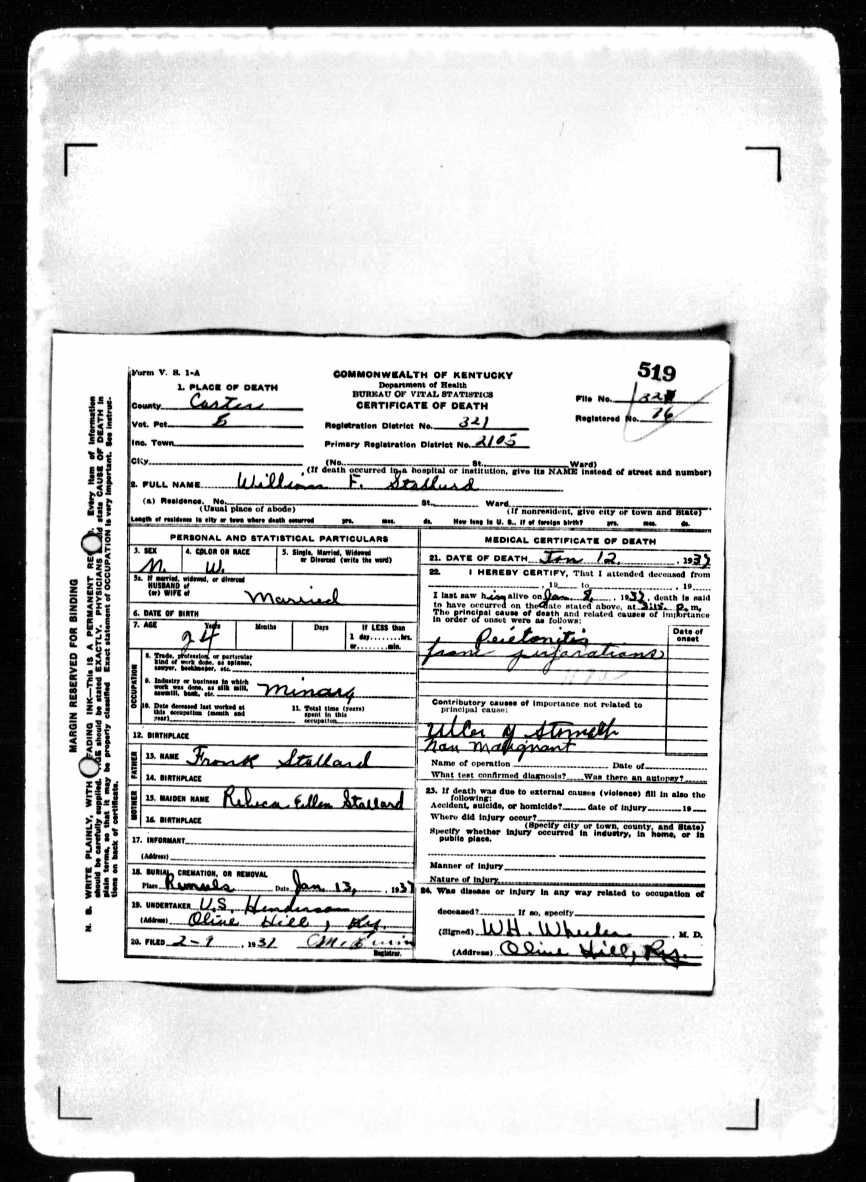 519
Form V. S. 1-A
COMMONWEALTH OF KENTUCKY
Department of Health
BUREAU OF VITAL STATISTICS
CERTIFICATE OF DEATH
1. PLACE OF DEATH
County Carter
Vot. Pct. 5
Inc. Town
City
Registration District No. 321
Primary Registration District No. 2105
File No.
Registered No. 16
(No. St. Ward)
(If death occurred in a hospital or institution, give its NAME instead of street and number)
2. FULL NAME William F. Stallard
(a) Residence. No. St. Ward
(Usual place of abode) (If nonresident, give city or town and State)
Length of residence in city or town where death occurred yrs. mos. ds. How long in U. S., if of foreign birth? yrs. mos. ds.
PERSONAL AND STATISTICAL PARTICULARS
3. SEX 4. COLOR OR RACE 5. Single, Married, Widowed
or Divorced (write the word)
M. W.
5a. If married, widowed, or divorced
HUSBAND of
(or) WIFE of
Married
6. DATE OF BIRTH
7. AGE Years Months Days If LESS than
1 day........hrs.
or........min.
24
OCCUPATION
8. Trade, profession, or particular
kind of work done, as spinner,
sawyer, bookkeeper, etc.
9. Industry or business in which
work was done, as silk mill,
sawmill, bank, etc.
10. Date deceased last worked at
this occupation (month and
year)
11. Total time (years)
spent in this
occupation
12. BIRTHPLACE
FATHER
13. NAME Frank Stallard
14. BIRTHPLACE
MOTHER
15. MAIDEN NAME Rebeca Ellen Stallard
16. BIRTHPLACE
17. INFORMANT
(Address)
18. BURIAL, CREMATION, OR REMOVAL
Place Date Jan 13, , 1937
19. UNDERTAKER U.S. Henderson
(Address) Olive Hill, Ky.
20. FILED 2-9 , 1937
Registrar.
MEDICAL CERTIFICATE OF DEATH
21. DATE OF DEATH Jan 12, , 1937
22. I HEREBY CERTIFY, That I attended deceased from
, 19 to , 19
I last saw him alive on Jan. 8, , 1937, death is said
to have occurred on the date stated above, at p. m.
The principal cause of death and related causes of importance
in order of onset were as follows:
Date of
onset
Peietonitis
from
Contributory causes of importance not related to
principal cause:
Ulcer of Stomach
Non Malignant
Name of operation Date of
What test confirmed diagnosis? Was there an autopsy?
23. If death was due to external causes (violence) fill in also the
following:
Accident, suicide, or homicide? date of injury 19
Where did injury occur?
(Specify city or town, county, and State)
Specify whether injury occurred in industry, in home, or in
public place.
Manner of injury
Nature of injury
24. Was disease or injury in any way related to occupation of
deceased? If so, specify
(Signed) W.H. Wheeler , M. D.
(Address) Olive Hill, Ky.
MARGIN RESERVED FOR BINDING
N. B. WRITE PLAINLY, WITH FADING INK—This is a PERMANENT Every item of information
should be carefully supplied. should be stated EXACTLY. PHYSICIANS state CAUSE OF DEATH in
plain terms, so that it may be properly classified. Exact statement of OCCUPATION is very important. See instruc-
tions on back of certificate.